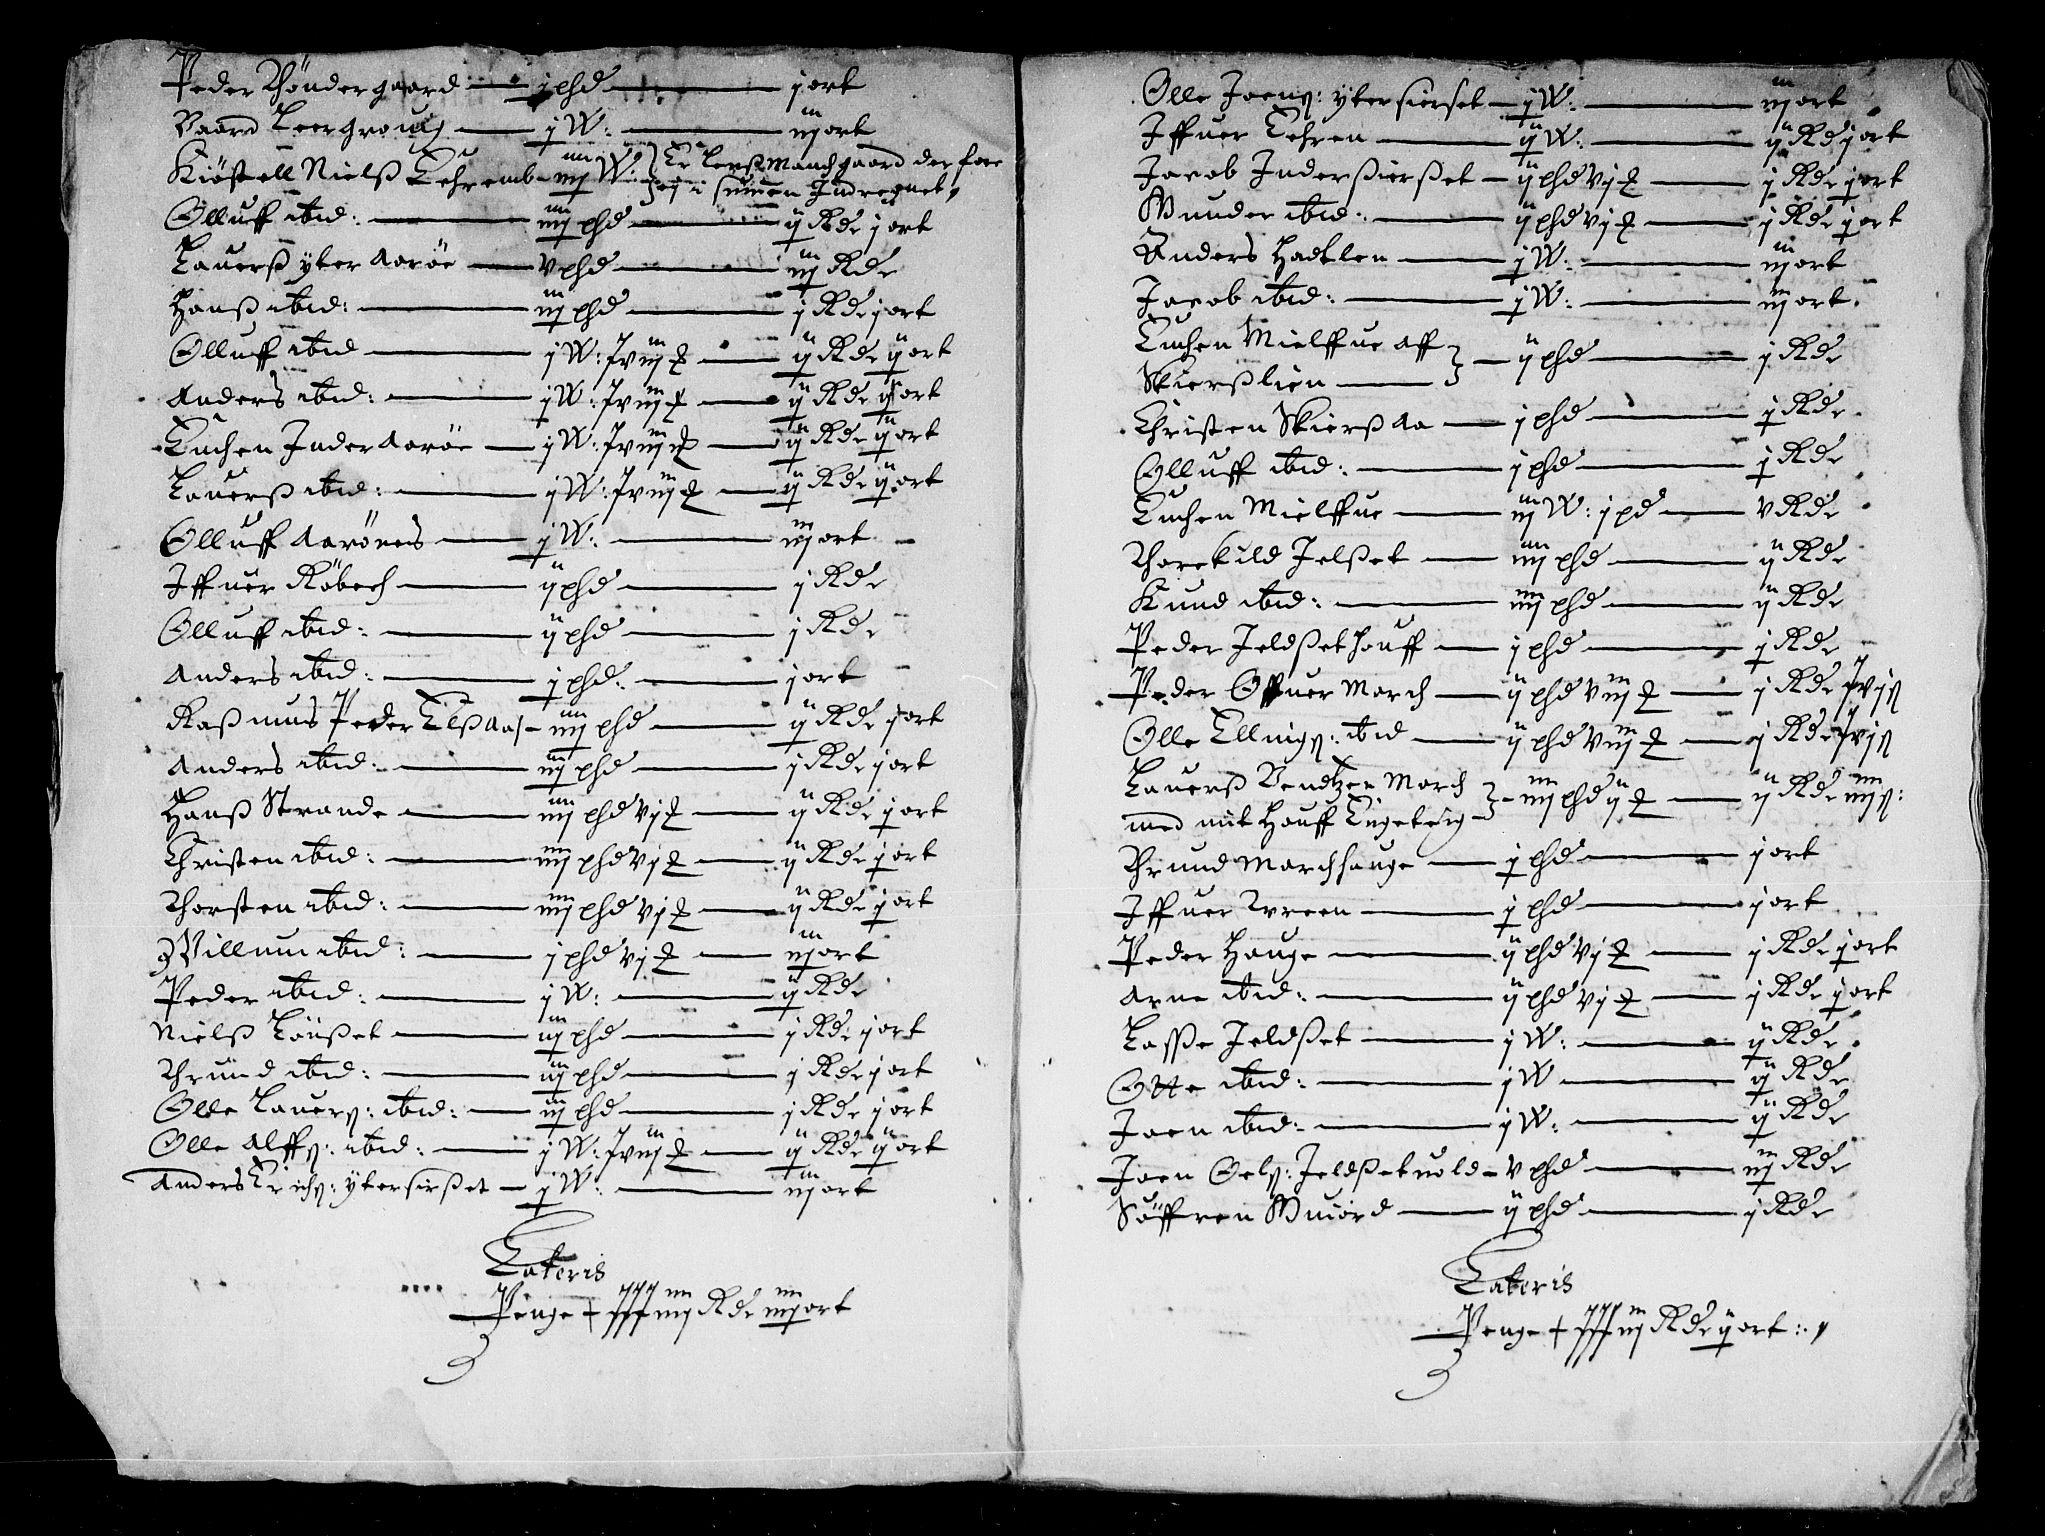 Peder Thöndergaard — j phd — j ort
Baard Leergrouff — j W: — iij ort
Kiöstell Nielß Lehremb — iiij W: Er Lenßmandhgaard der fore
ej i summen Indregnet,
Olluff ibid: — iiij phd — ij Rdr j ort
Lauerß ytter Aaröe — v phd — iij Rdr
Hanß ibid: — iij phd — j Rdr j ort
Olluff ibid — j W: xviij ℔ — ij Rdr ij ort
Anders ibid: — j W: xviij ℔ — ij Rdr ij ort
Enchen Inder Aaröe — j W: xviij ℔ — ij Rdr ij ort
Lauerß ibid: — j W: xviij ℔ — ij Rdr ij ort
Olluff Aarönes — j W: — iij ort
Iffuer Röbech — ij phd — j Rdr
Olluff ibid: — ij phd — j Rdr
Anders ibid: — j phd: — j ort
Raßmus Peder Elßaas — iiij phd — ij Rdr j ort
Anders ibid: — iij phd — j Rdr j ort
Hanß Strande — iiij phd vj ℔ — ij Rdr j ort
Christen ibid: — iiij phd vj ℔ — ij Rdr j ort
Thorsten ibid: — iiij phd vj ℔ — ij Rdr j ort
Willum ibid: — j phd vj ℔ — iij ort
Peder ibid: — j W: — ij Rdr
Nielß Lönßet — iij phd — j Rdr: j ort
Thrund ibid: — iij phd — j Rdr j ort
Olle Lauerß: ibid: — iij phd — j Rdr j ort
Olle Alffß: ibid: — j W: xviij ℔ — ij Rdr ij ort
Anders Erichß: yttersirßet — j W: — iij ort
Lateris
Penge + xxxiiij Rdr iiij ort
Olle Joenß: yttersierset — j W: — iij ort
Iffuer Lehren — ij W: — ij Rdr j ort
Jacob Inderßierßet — ij phd vj ℔ — j Rdr j ort
Gunder ibid: — ij phd vj ℔ — j Rdr j ort
Anders Hadtlen — j W: — iij ort
Jacob ibid: — j W: — iij ort
Enchen Mielffue aff
Skierßlien — ij phd — j Rdr
Christen Skierß Aa — j phd — j Rdr
Olluff ibid: — j phd — j Rdr
Enchen Mielffue — iij W: j pd — v Rdr
Thorckild Jelßet — iiij phd — ij Rdr
Knud ibid: — iiij phd — ij Rdr
Peder Jeldßethouff — j phd — j Rdr
Peder Offuer March — ij phd viij ℔ — j Rdr xvj ß
Olle Ellingß: ibid — ij phd viij ℔ — j Rdr xvj ß
Lauerß Bendtzen March
med mit Houff Engebrig — iiij phd ij ℔ — ij Rdr iiij ß:
Thrund Marchhauge — j phd — j ort
Iffuer Wreen — j phd — j ort
Peder Hauge — ij phd vj ℔ — j Rdr j ort
Arne ibid: — ij phd vj ℔ — j Rdr j ort
Laße Jeldßet — j W: — ij Rdr
Otte ibid: — j W — ij Rdr
Joen ibid: — j W: — ij Rdr
Joen Oelß: Jeldßetuold — v phd — iij Rdr
Söffren Gujord — ij phd — j Rdr
Lateris
Penge + xxxiij Rdr ij ort: